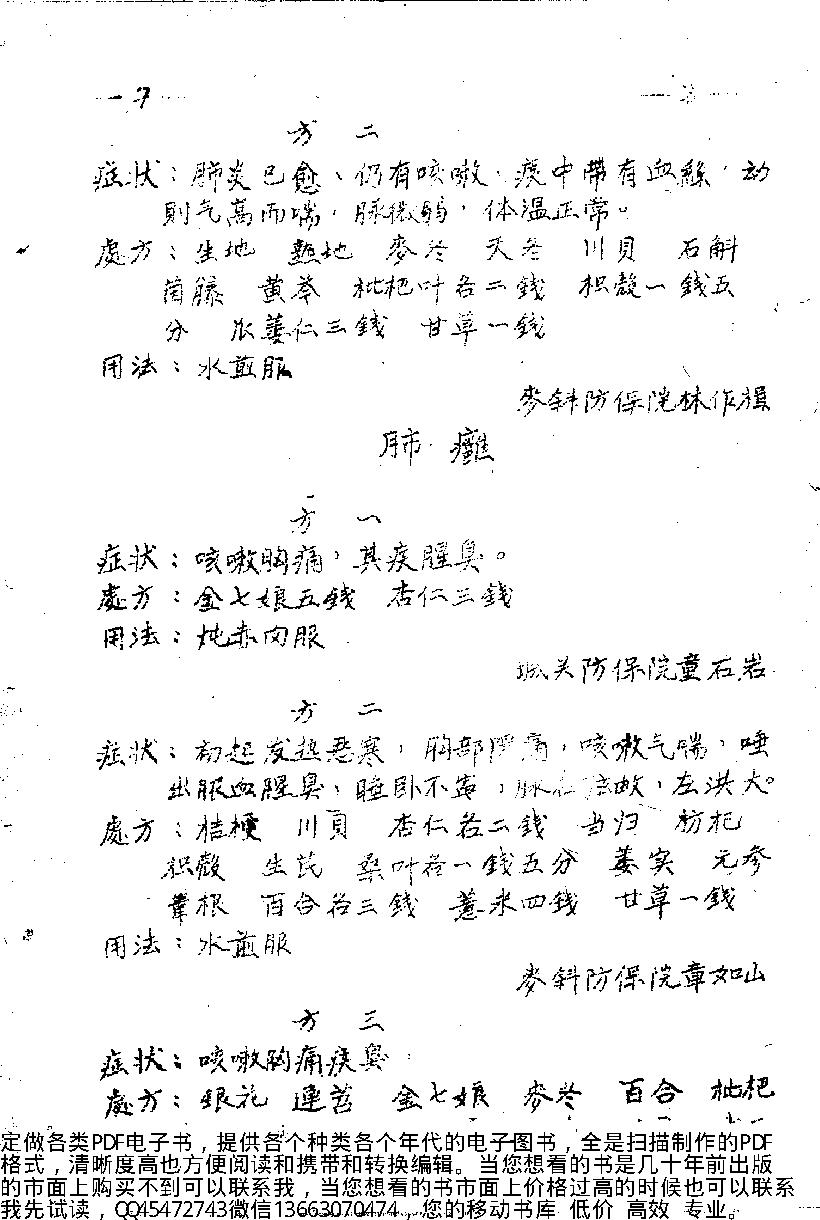 方 二
症状：肺炎已愈、仍有咳嗽，痰中带有血絲，动
則气高而喘，脉微弱，体温正常。
處方：生地 熟地 麥冬 天冬 川貝 石斛
黄芩 枇杷叶各二錢 枳殻一錢五
分 蒌仁三錢 甘草一錢
用法：水煎服
麥斜防保院林作
肺 癰
方 一
症状：咳嗽胸痛，其痰腥臭。
處方：金七娘五錢 杏仁三錢
用法：炖赤肉服
城关防保院童石岩
方 二
症状：初起发热恶寒，胸部隱痛，咳嗽气喘，唾
出脓血腥臭，睡卧不寧，脉右弦数，左洪大。
處方：桔梗 川貝 杏仁各二錢 当归 杞
枳殻 生芪 桑叶各一錢五分 蒌实 元参
葦根 百合各三錢 薏米四錢 甘草一錢
用法：水煎服
麥斜防保院章如山
方 三
症状：咳嗽胸痛痰臭
處方：銀花 連召 金七娘 麥冬 百合 枇杷
定做各类PDF电子书，提供各个种类各个年代的电子图书，全是扫描制作的PDF
格式，清晰度高也方便阅读和携带和转换编辑。当您想看的书是几十年前出版
的市面上购买不到可以联系我，当您想看的书市面上价格过高的时候也可以联系
我先试读，QQ45472743微信13663070474，您的移动书库 低价 高效 专业。